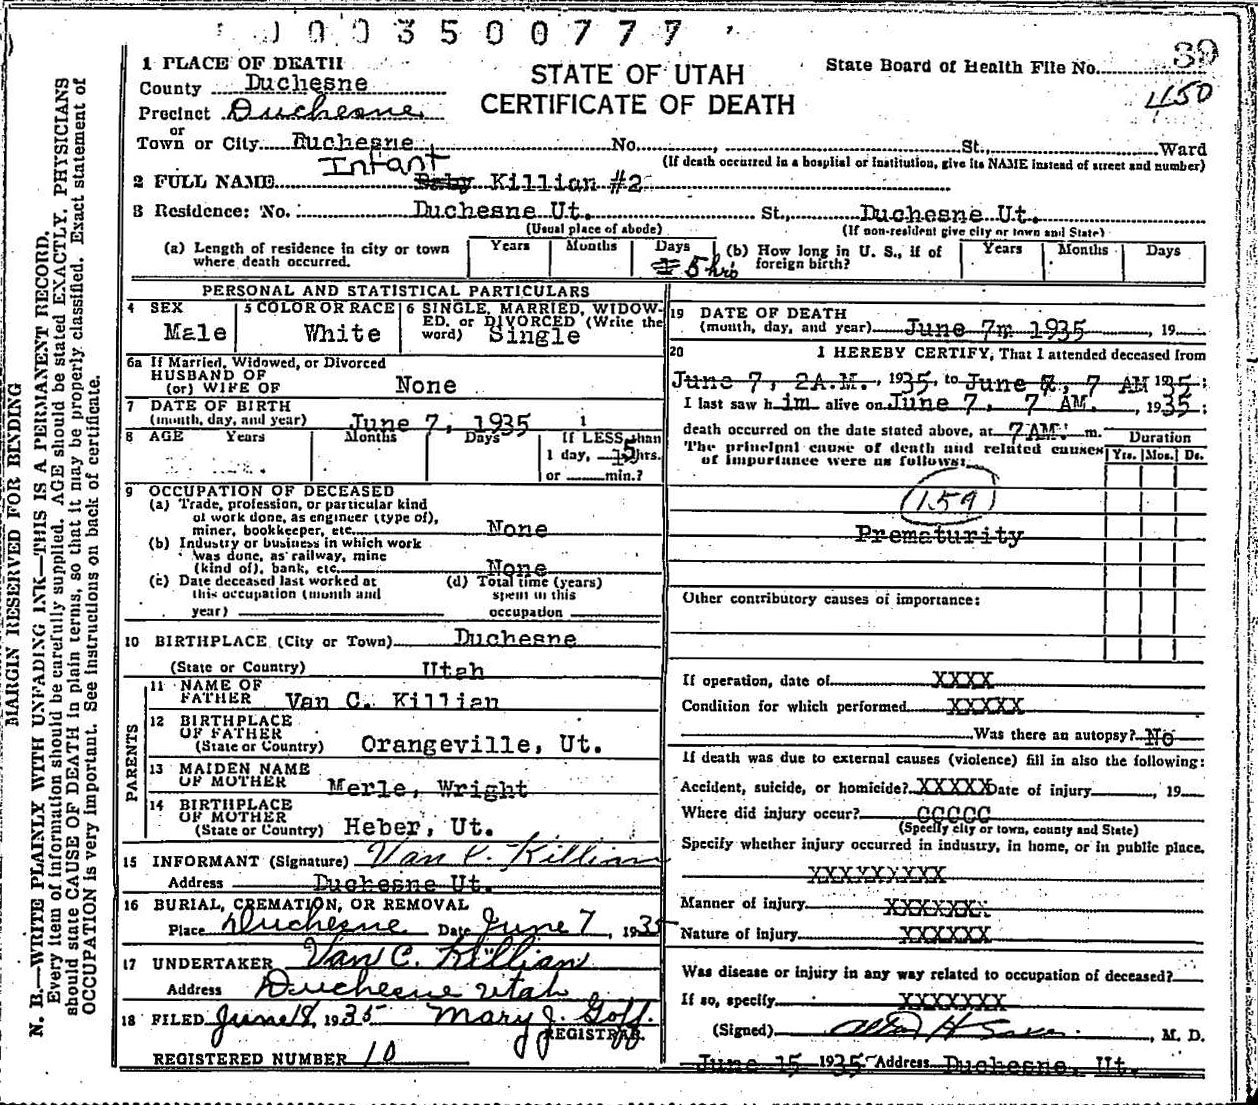 0 0 3 5 0 0 7 7 7
39
State Board of Health File No.
450
STATE OF UTAH
CERTIFICATE OF DEATH
1 PLACE OF DEATH
County Duchesne
Precinct Duchesne
or
Town or City Duchesne No. , St., Ward
(If death occurred in a hospital or institution, give its NAME instead of street and number)
Infant
2 FULL NAME Baby Killian #2
3 Residence: No. Duchesne Ut. St., Duchesne Ut.
(Usual place of abode) (If non-resident give city or town and State)
(a) Length of residence in city or town where death occurred. Years Months Days 5 hrs
(b) How long in U. S., if of foreign birth? Years Months Days
PERSONAL AND STATISTICAL PARTICULARS
4 SEX Male
5 COLOR OR RACE White
6 SINGLE, MARRIED, WIDOWED, or DIVORCED (Write the word) Single
6a If Married, Widowed, or Divorced
HUSBAND OF
(or) WIFE OF None
7 DATE OF BIRTH
(month, day, and year) June 7, 1935 1
8 AGE Years Months Days If LESS than
1 day, 5 hrs.
or min.?
9 OCCUPATION OF DECEASED
(a) Trade, profession, or particular kind
of work done, as engineer (type of),
miner, bookkeeper, etc. None
(b) Industry or business in which work
was done, as railway, mine
(kind of), bank, etc. None
(c) Date deceased last worked at
this occupation (month and
year)
(d) Total time (years)
spent in this
occupation
10 BIRTHPLACE (City or Town) Duchesne
(State or Country) Utah
PARENTS
11 NAME OF
FATHER Van C. Killian
12 BIRTHPLACE
OF FATHER
(State or Country) Orangeville, Ut.
13 MAIDEN NAME
OF MOTHER Merle, Wright
14 BIRTHPLACE
OF MOTHER
(State or Country) Heber, Ut.
15 INFORMANT (Signature) Van C. Killian
Address Duchesne Ut.
16 BURIAL, CREMATION, OR REMOVAL
Place Duchesne Date June 7, 1935
17 UNDERTAKER Van C. Killian
Address Duchesne Utah
18 FILED June 18, 1935 Mary J. Goff.
REGISTRAR.
REGISTERED NUMBER 10
19 DATE OF DEATH
(month, day, and year) June 7m 1935 , 19
20 I HEREBY CERTIFY, That I attended deceased from
June 7, 2A.M., 1935, to June 7, 7 AM 1935;
I last saw him alive on June 7, 7 AM. , 1935;
death occurred on the date stated above, at 7AM. m.
The principal cause of death and related causes
of importance were as follows:
Duration
Yrs. Mos. Ds.
159
Prematurity
Other contributory causes of importance:
If operation, date of XXXX
Condition for which performed XXXXX
Was there an autopsy? No
If death was due to external causes (violence) fill in also the following:
Accident, suicide, or homicide? XXXXX Date of injury , 19
Where did injury occur? CCCCC
(Specify city or town, county and State)
Specify whether injury occurred in industry, in home, or in public place.
XXXXXXXXX
Manner of injury XXXXXXX
Nature of injury XXXXXX
Was disease or injury in any way related to occupation of deceased?
If so, specify XXXXXXX
(Signed) , M. D.
June 15 1935 Address Duchesne, Ut.
MARGIN RESERVED FOR BINDING
N. B.—WRITE PLAINLY WITH UNFADING INK—THIS IS A PERMANENT RECORD.
Every item of information should be carefully supplied. AGE should be stated EXACTLY. PHYSICIANS
should state CAUSE OF DEATH in plain terms, so that it may be properly classified. Exact statement of
OCCUPATION is very important. See instructions on back of certificate.